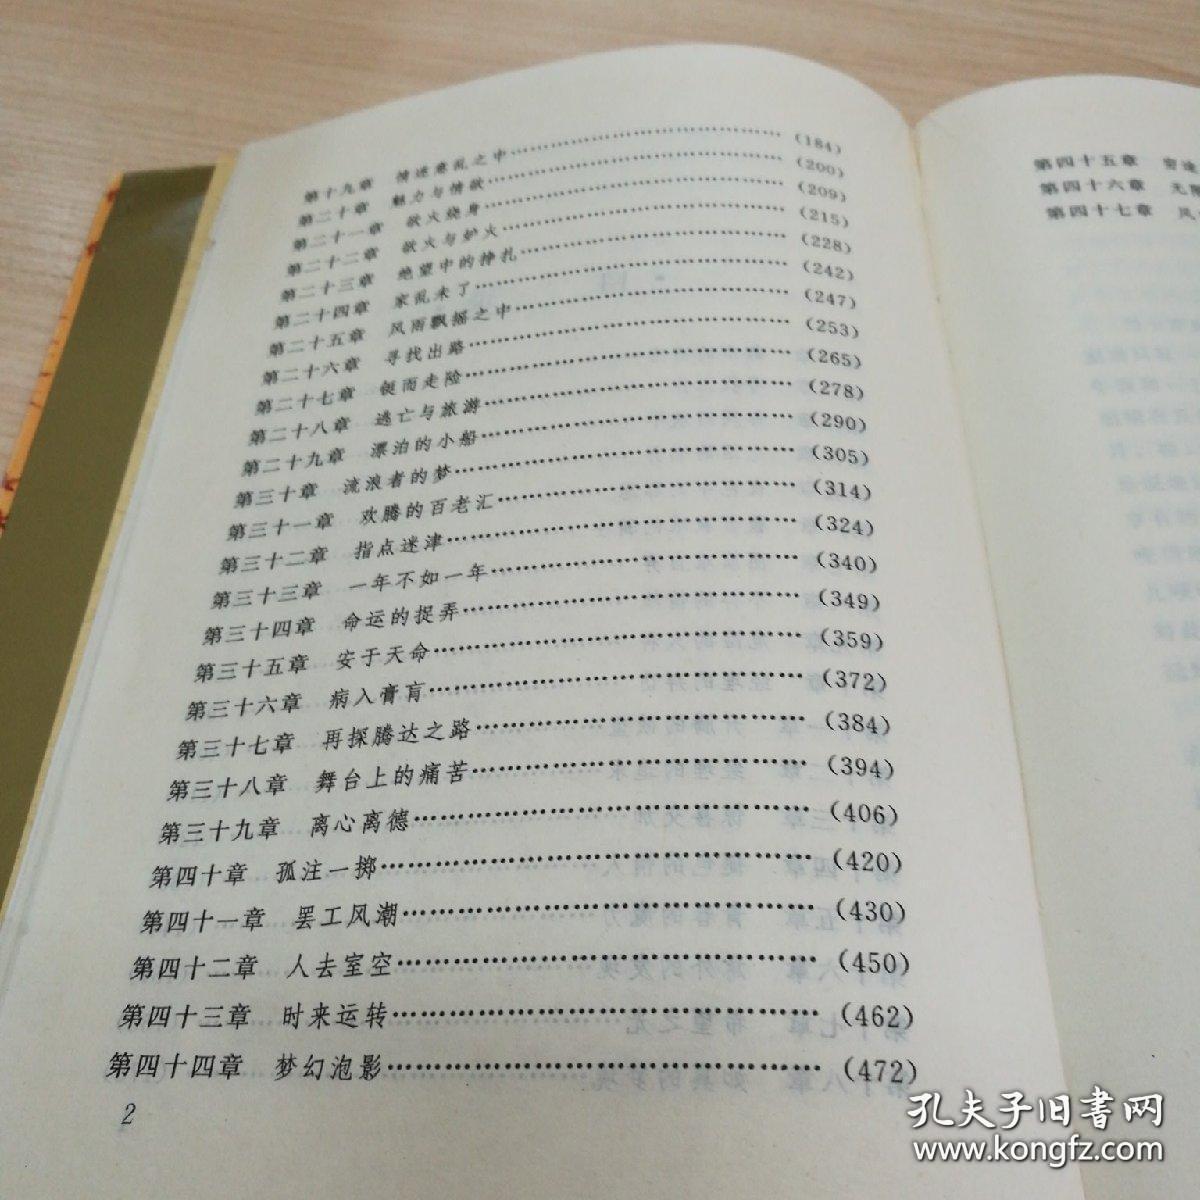 第十九章 情迷意乱之中……(184)
第二十章 魅力与情欲……(200)
第二十一章 欲火烧身……(209)
第二十二章 欲火与妒火……(215)
第二十三章 绝望中的挣扎……(228)
第二十四章 家乱未了……(242)
第二十五章 风雨飘摇之中……(247)
第二十六章 寻找出路……(253)
第二十七章 铤而走险……(265)
第二十八章 逃亡与旅游……(278)
第二十九章 漂泊的小船……(290)
第三十章 流浪者的梦……(305)
第三十一章 欢腾的百老汇……(314)
第三十二章 指点迷津……(324)
第三十三章 一年不如一年……(340)
第三十四章 命运的捉弄……(349)
第三十五章 安于天命……(359)
第三十六章 病入膏肓……(372)
第三十七章 再探腾达之路……(384)
第三十八章 舞台上的痛苦……(394)
第三十九章 离心离德……(406)
第四十章 孤注一掷……(420)
第四十一章 罢工风潮……(430)
第四十二章 人去室空……(450)
第四十三章 时来运转……(462)
第四十四章 梦幻泡影……(472)
2
第四十五章 穷途
第四十六章 无
第四十七章 风
孔夫子旧书网
www.kongfz.com